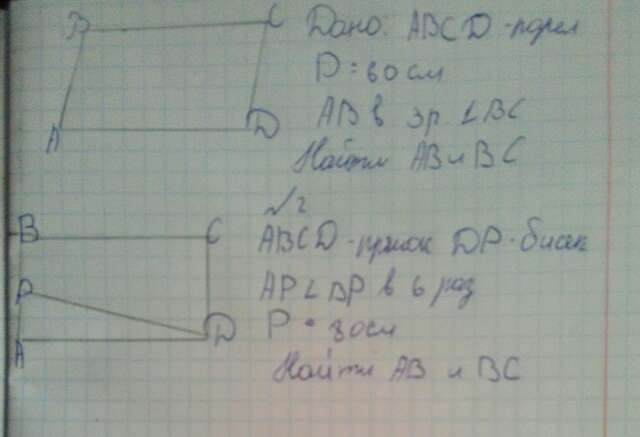 B C Дано: ABCD - парал
P = 80 см
AB в 3р. < BC
A D Найти AB и BC
√2
B C ABCD - прямок DP - бисек
P AP < BP в 6 раз
D P = 80см
A
Найти AB и BC